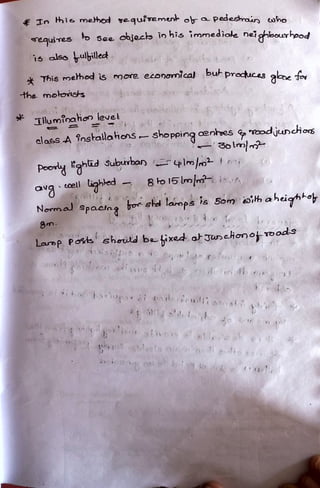 * In this method requirement of a pedestrain, who
requires to see objects in his immediate neighbourhood
is also fulfilled.
* This method is more economical but produces glare for
the motorists
* Illumination level
class A installations - shopping centres & road junctions
- 30 lm/m²
Poorly lighted suburban - 4 lm/m²
avg. well lighted - 8 to 15 lm/m²
Normal spacing for std lamps is 50m with a height of
8m.
Lamp Posts should be fixed at Junction of roads